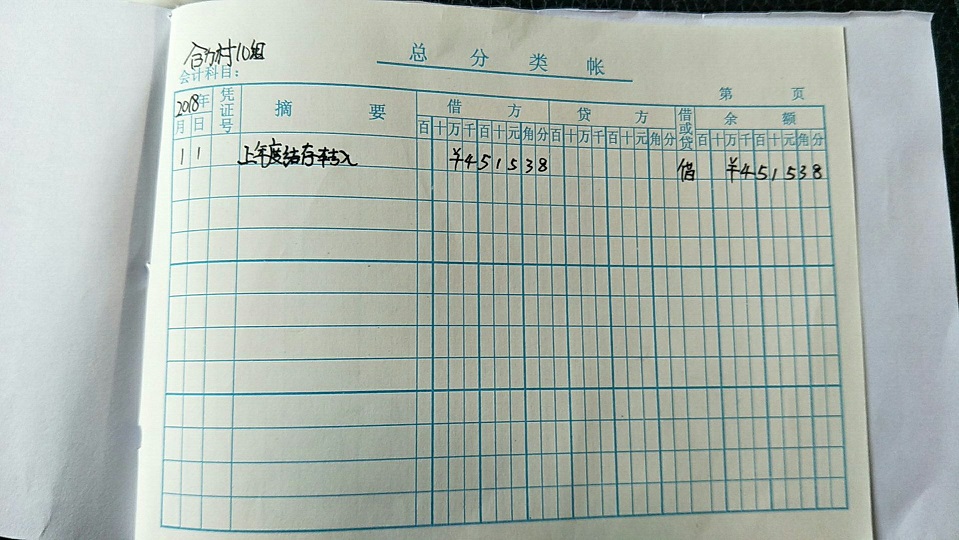 合力村10组
总分类帐
会计科目：
第 页
2018年 凭证号 摘要 借方 贷方 借或贷 余额
月 日 百十万千百十元角分 百十万千百十元角分 百十万千百十元角分
1 1 上年度结存转入 ¥451538 借 ¥451538